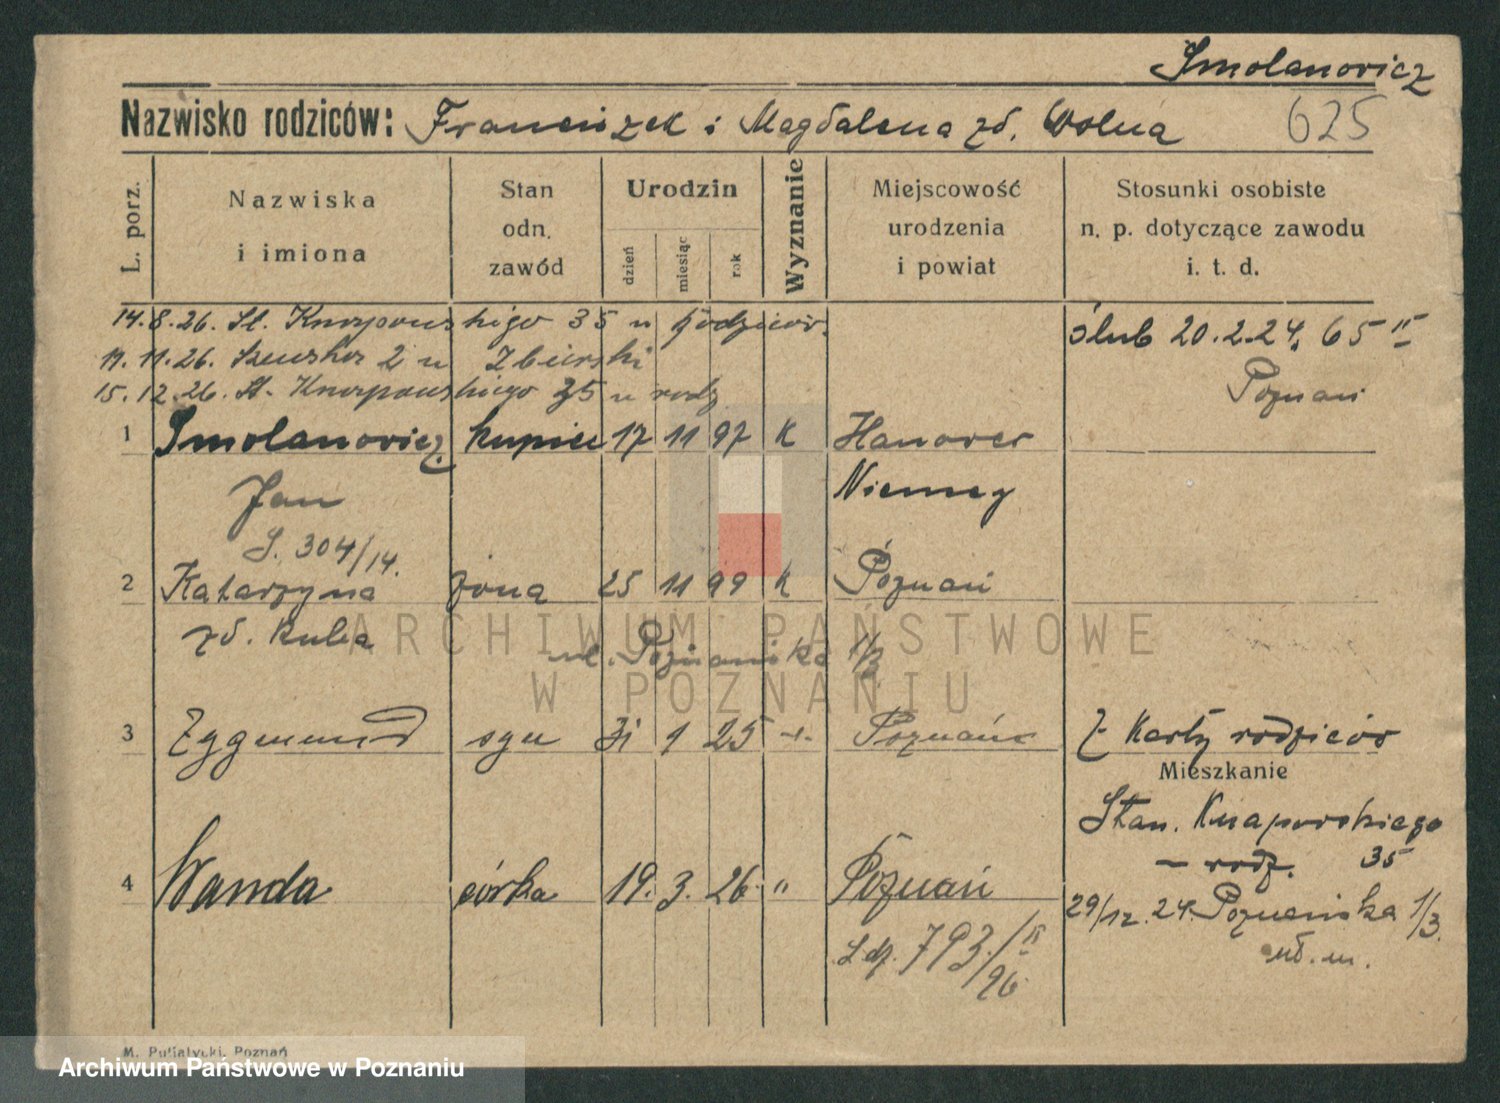 Smolanowicz
Nazwisko rodziców: Franciszek i Magdalena zd. Wolna 625
L. porz.
Nazwiska i imiona
Stan odn. zawód
Urodzin
dzień
miesiąc
rok
Wyznanie
Miejscowość urodzenia i powiat
Stosunki osobiste n. p. dotyczące zawodu i. t. d.
14.8.26. St. Knapowskiego 35 u rodziców.
ślub 20.2.24. 65 II
11.11.26. 2 u Zbierski
Poznań
15.12.26. St. Knapowskiego 35 u rodz
1 Smolanowicz kupiec 17 11 97 K Hanower
Jan Niemcy
S. 304/14.
2 Katarzyna żona 25 11 99 K Poznań
zd. Kuba
ul. Poznańska 1/3
3 Zygmund syn 31 1 25 -"- Poznań Z Karty rodziców
Mieszkanie
Stan. Knapowskiego
35
– rodz.
4 Wanda córka 19. 3. 26. " Poznań
29/12.24. Poznańska 1/3.
L.dz. 793/II 26
ARCHIWUM PAŃSTWOWE
W POZNANIU
M. Putiatycki, Poznań
Archiwum Państwowe w Poznaniu